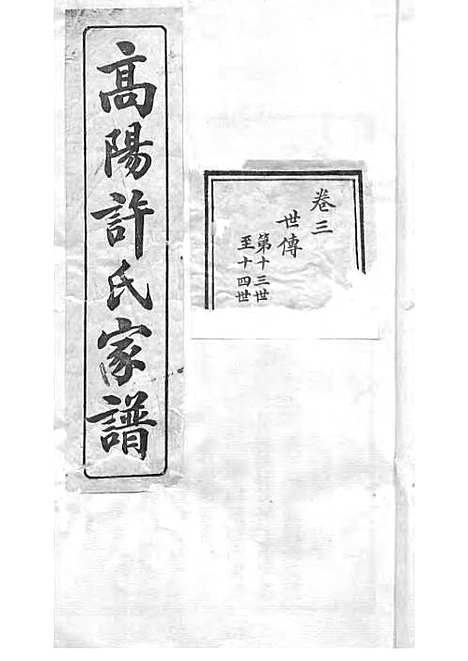 高陽許氏家譜
卷三
世傳
第十三世
至十四世